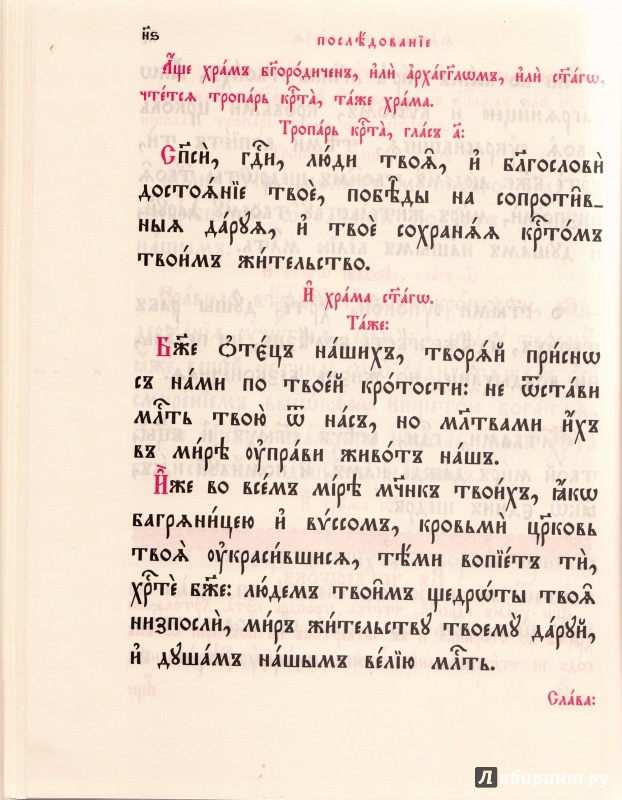 н҃ѕ
послѣ́дованїе
А҆́ще хра́мъ бг҃оро́диченъ, и҆лѝ а҆рха́гг҃лѡмъ, и҆лѝ ст҃а́гѡ,
чте́тсѧ тропа́рь крⷭ҇та̀, та́же хра́ма.
Тропа́рь крⷭ҇та̀, гла́съ а҃:
Сп҃сѝ, гдⷭ҇и, лю́ди твоѧ̑, и҆ бл҃гословѝ
достоѧ́нїе твоѐ, побѣ̑ды на сопроти̑в-
ныѧ да́рꙋѧ, и҆ твоѐ сохранѧ́ѧ крⷭ҇то́мъ
твои́мъ жи́тельство.
И҆ хра́ма ст҃а́гѡ.
Та́же:
Бж҃е ѻ҆тє́цъ на́шихъ, творѧ́й при́снѡ
съ на́ми по твое́й кро́тости: не ѿста́ви
млⷭ҇ть твою̀ ѿ на́съ, но мл҃твами и҆́хъ
въ ми́рѣ ᲂу҆пра́ви живо́тъ на́шъ.
И҆́же во все́мъ мі́рѣ мч҃нкъ твои́хъ, ꙗ҆́кѡ
багрѧни́цею и҆ вѵ́ссомъ, кровьмѝ цр҃ковь
твоѧ̀ ᲂу҆краси́вшисѧ, тѣ́ми вопїе́тъ тѝ,
хрⷭ҇тѐ бж҃е: лю́демъ твои̑мъ щедрѡ́ты твоѧ̑
низпослѝ, ми́ръ жи́тельствꙋ твоемꙋ̀ да́рꙋй,
и҆ дꙋша́мъ на́шымъ ве́лїю млⷭ҇ть.
Сла́ва:
Лабиринт.ру